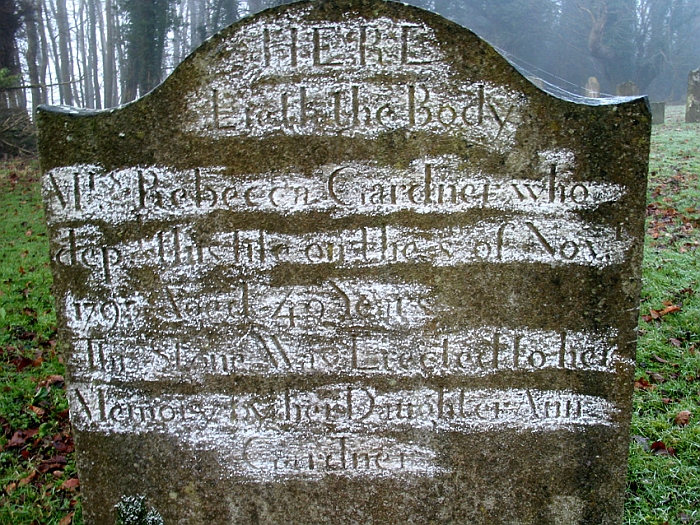 HERE
Lieth the Body
Mrs Rebecca Gardner who
dep this life on the of Novr
Aged 49 Years
This Stone Was Erected to her
Memory by her Daughter Ann
Gardner